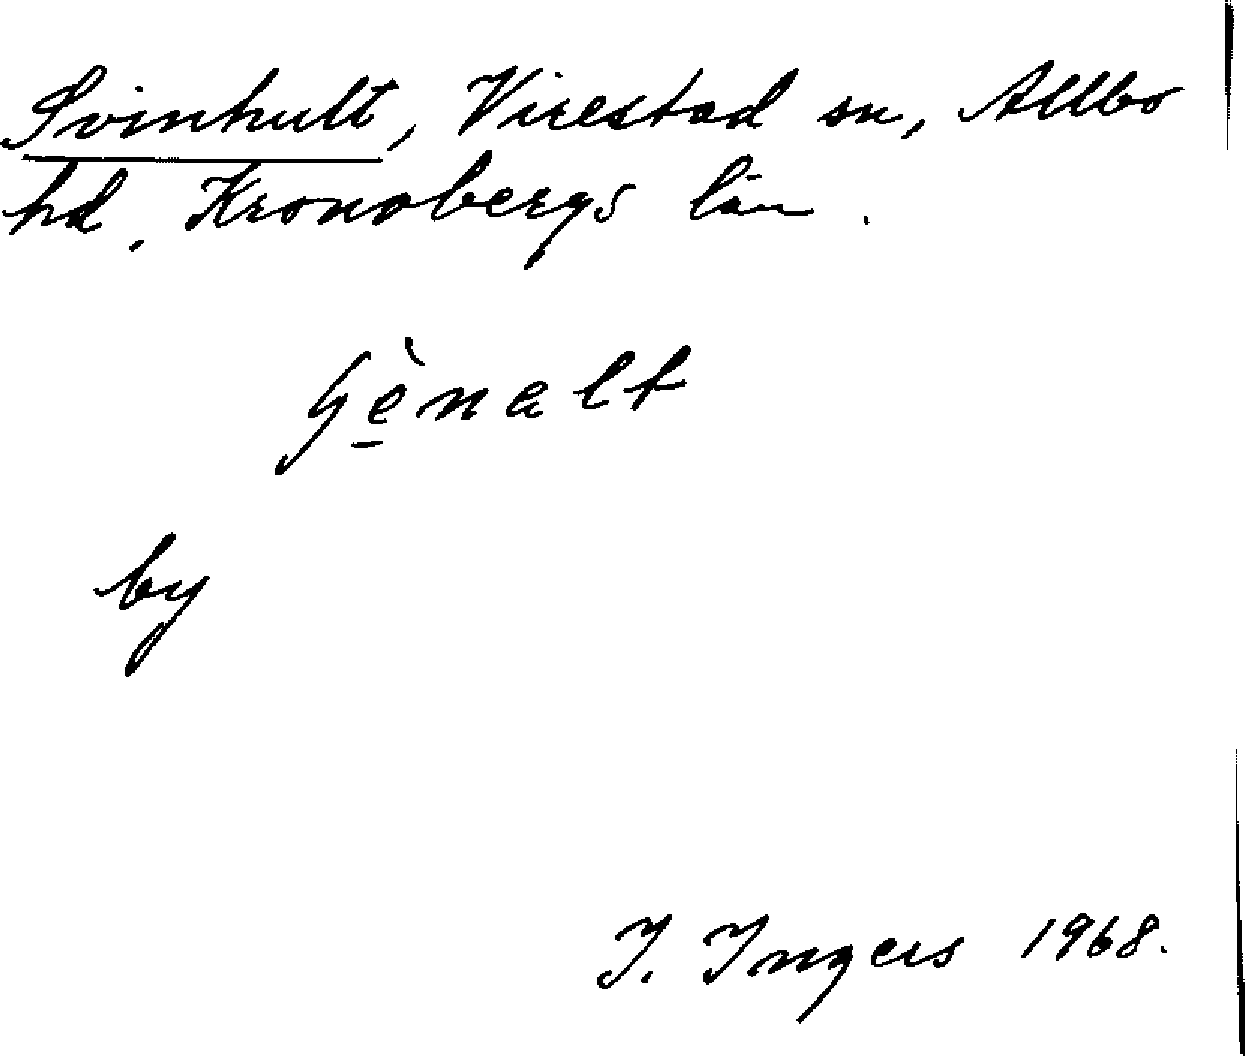 Svinhult, Virestad sn, Allbo
hd, Kronobergs län.
by
I. Ingers 1968.